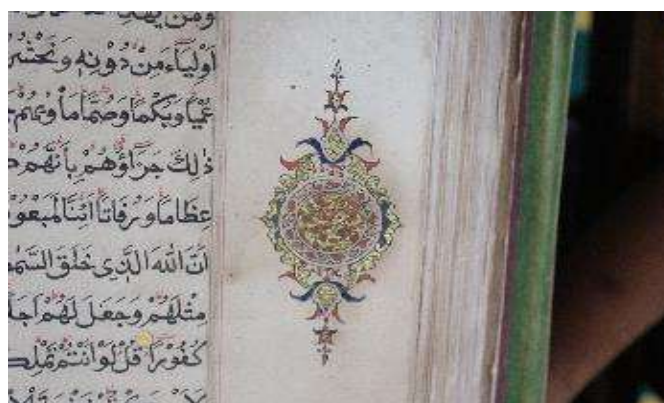 ومن يهد
اَوْلِيَآءَ مِنْ دُوْنِهٖ وَنَحْشُرُ
عُمْيًا وَبُكْمًا وَصُمًّا مَأْوٰىهُمْ
ذٰلِكَ جَزَآؤُهُمْ بِاَنَّهُمْ
عِظَامًا وَرُفَاتًا اَئِنَّا لَمَبْعُوْ
اَنَّ اللهَ الَّذِى خَلَقَ السَّمٰ
مِثْلَهُمْ وَجَعَلَ لَهُمْ اَجَلًا
كُفُوْرًا قُلْ لَوْ اَنْتُمْ تَمْلِكُ